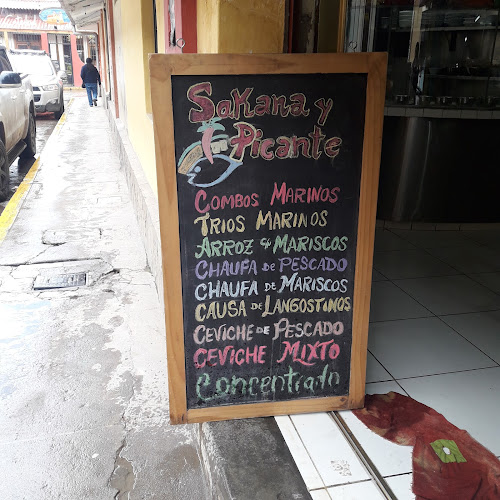 Sakana y
Picante
COMBOS MARINOS
TRIOS MARINOS
ARROZ C/ MARISCOS
CHAUFA DE PESCADO
CHAUFA DE MARISCOS
CAUSA DE LANGOSTINOS
CEVICHE DE PESCADO
CEVICHE MIXTO
Concentrado